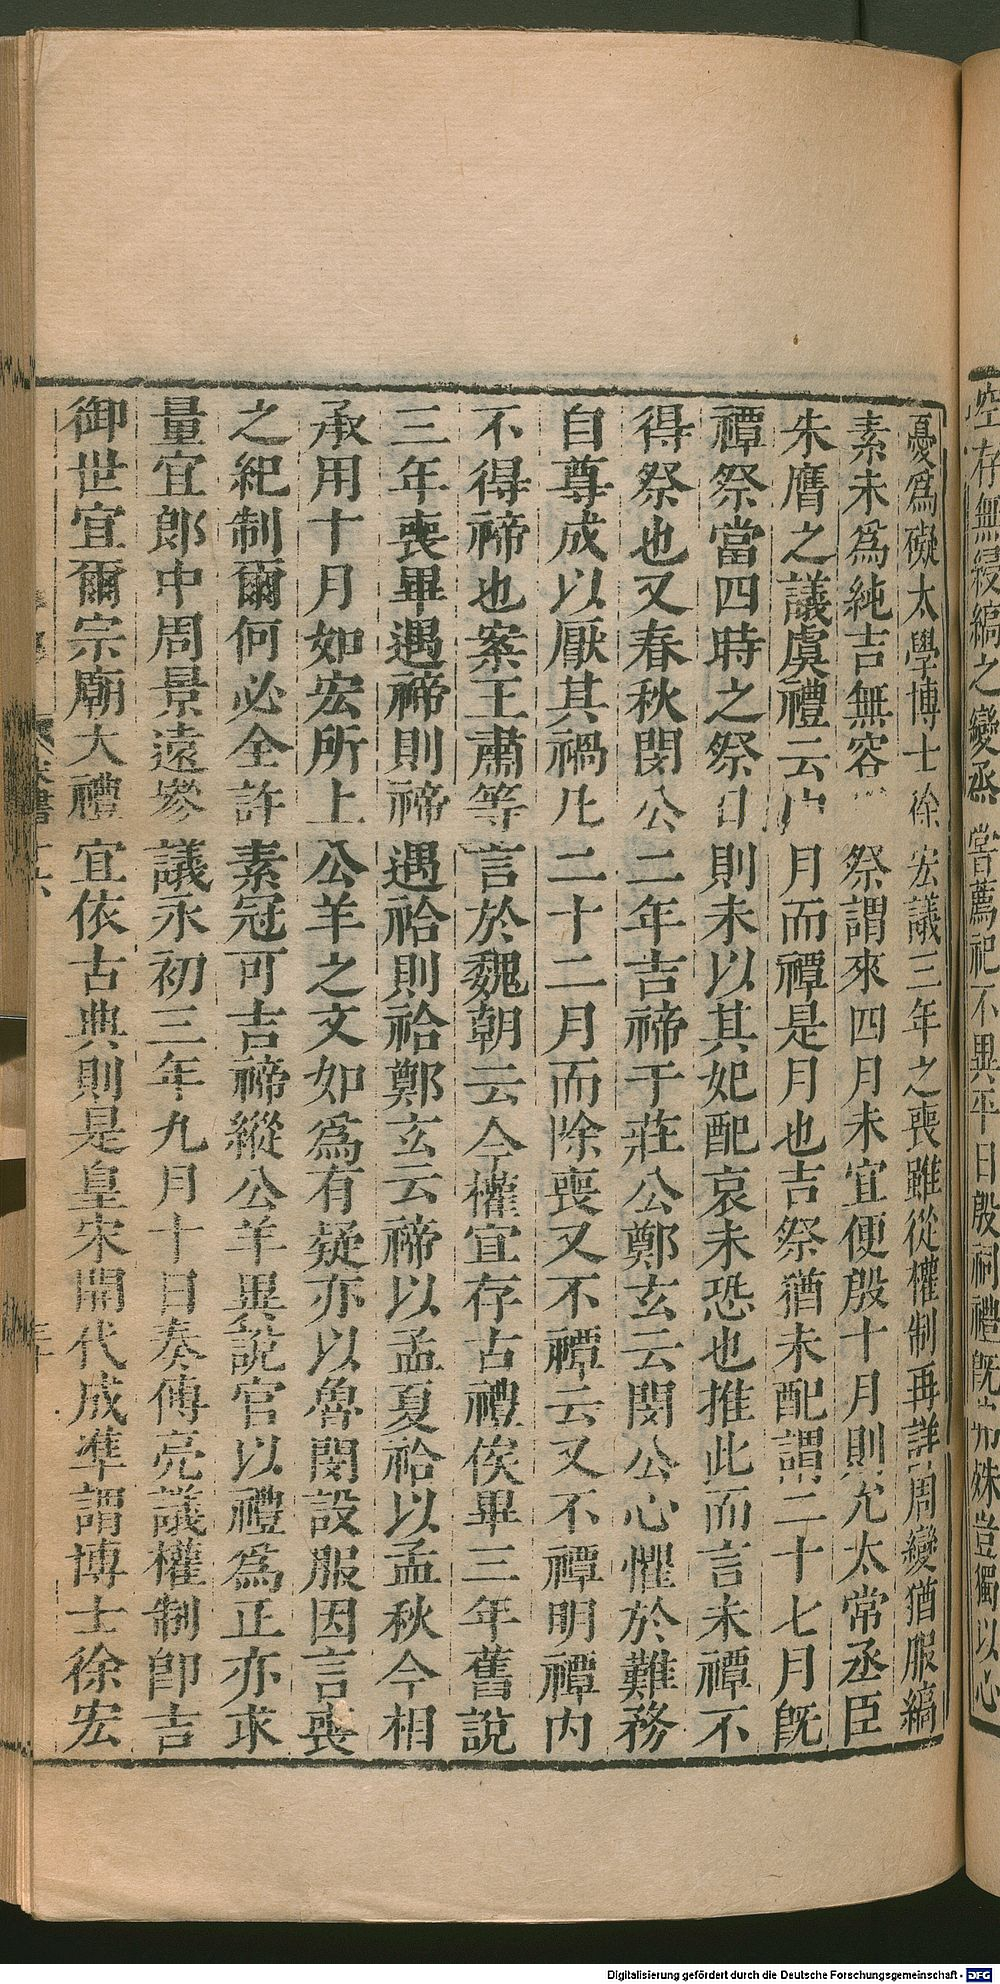 空存無綅縞之變烝甞薦祀不異平日殷祠禮旣弗殊豈獨以心
憂爲礙太學博士徐宏議三年之喪雖從權制再詳周變猶服縞
素未爲純吉無容祭謂來四月未宜便殷十月則允太常丞臣
朱膺之議虞禮云中月而禫是月也吉祭猶未配謂二十七月旣
禫祭當四時之祭日則未以其妃配哀未忘也推此而言未禫不
得祭也又春秋閔公二年吉禘于莊公鄭玄云閔公心懼於難務
自尊成以厭其禍凡二十二月而除喪又不禫云又不禫明禫內
不得禘也案王肅等言於魏朝云今權宜存古禮俟畢三年舊說
三年喪畢遇禘則禘遇祫則祫鄭玄云禘以孟夏祫以孟秋今相
承用十月如宏所上公羊之文如爲有疑亦以魯閔設服因言喪
之紀制爾何必全許素冠可吉禘縱公羊異說官以禮爲正亦求
量宜郎中周景遠參議永初三年九月十日奏傅亮議權制卽吉
御世宜爾宗廟大禮宜依古典則是皇宋開代成準謂博士徐宏
Digitalisierung gefördert durch die Deutsche Forschungsgemeinschaft - DFG